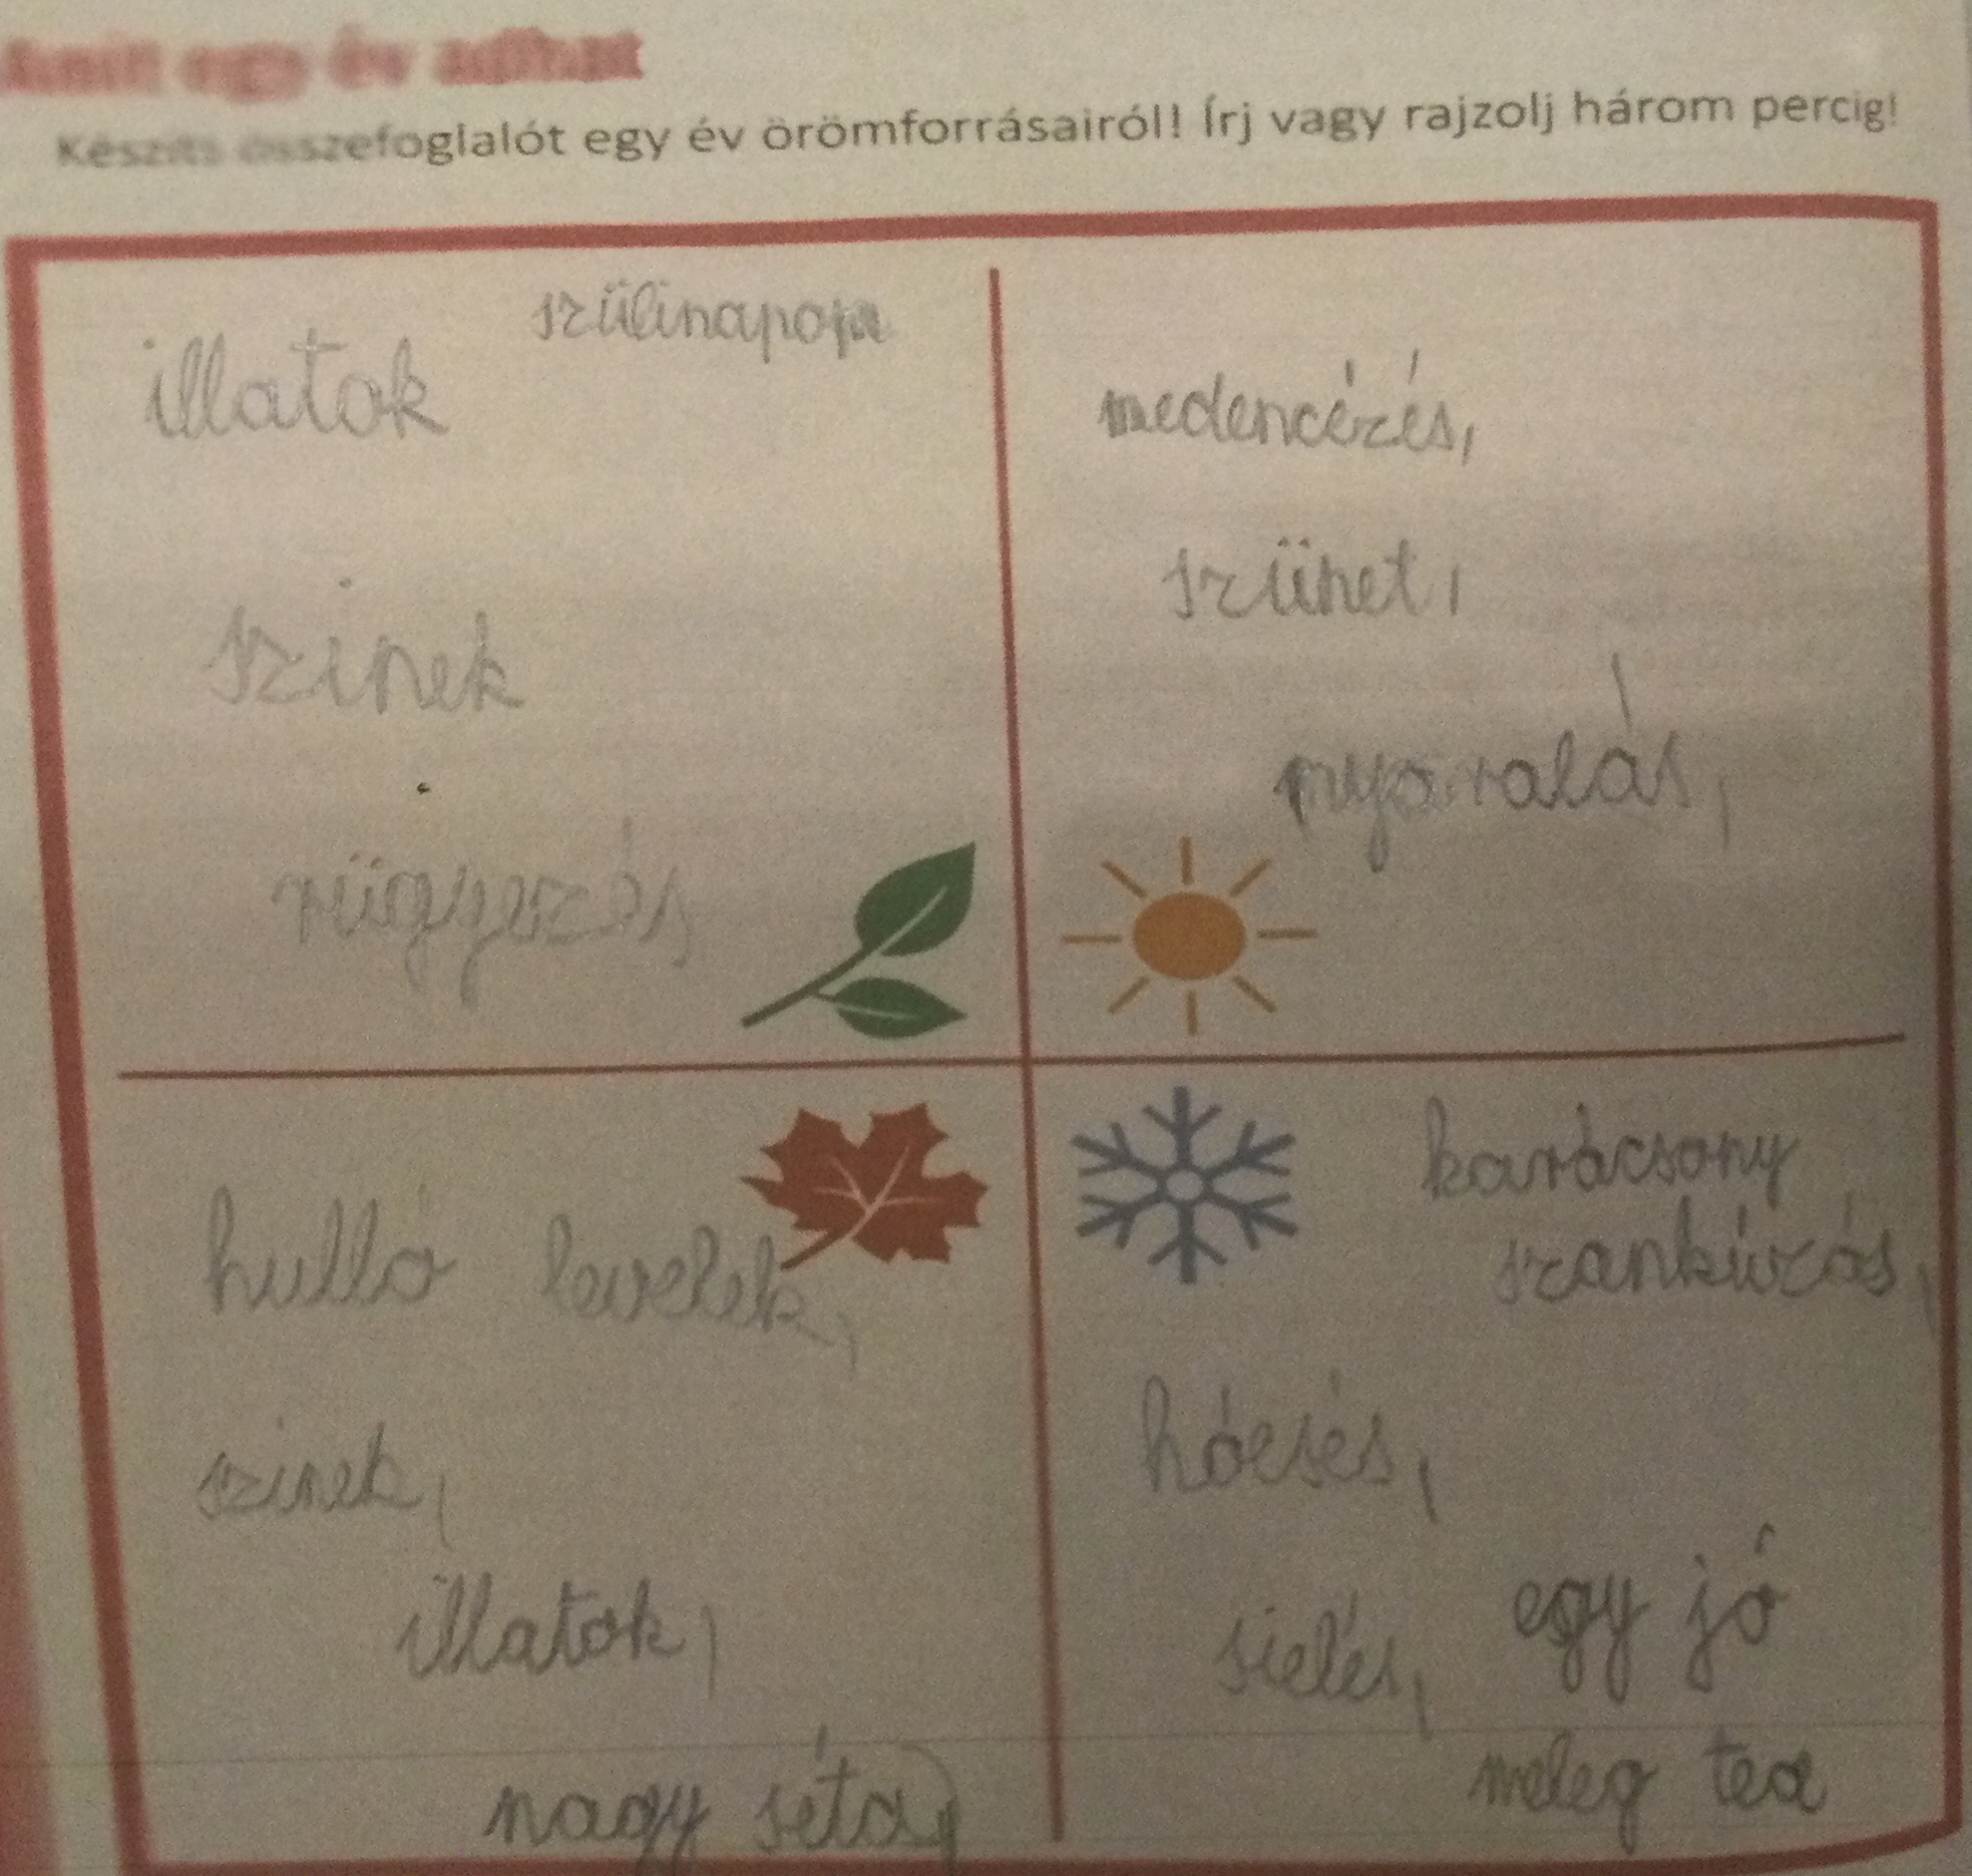 Amit egy év adhat
Készíts összefoglalót egy év örömforrásairól! Írj vagy rajzolj három percig!
szülinapom
illatok
szinek
rügyezés
medencézés,
szünet,
nyaralás,
hulló levelek,
szinek,
illatok,
nagy séta,
karácsony
szankózás,
hóesés,
sielés,
egy jó
meleg tea